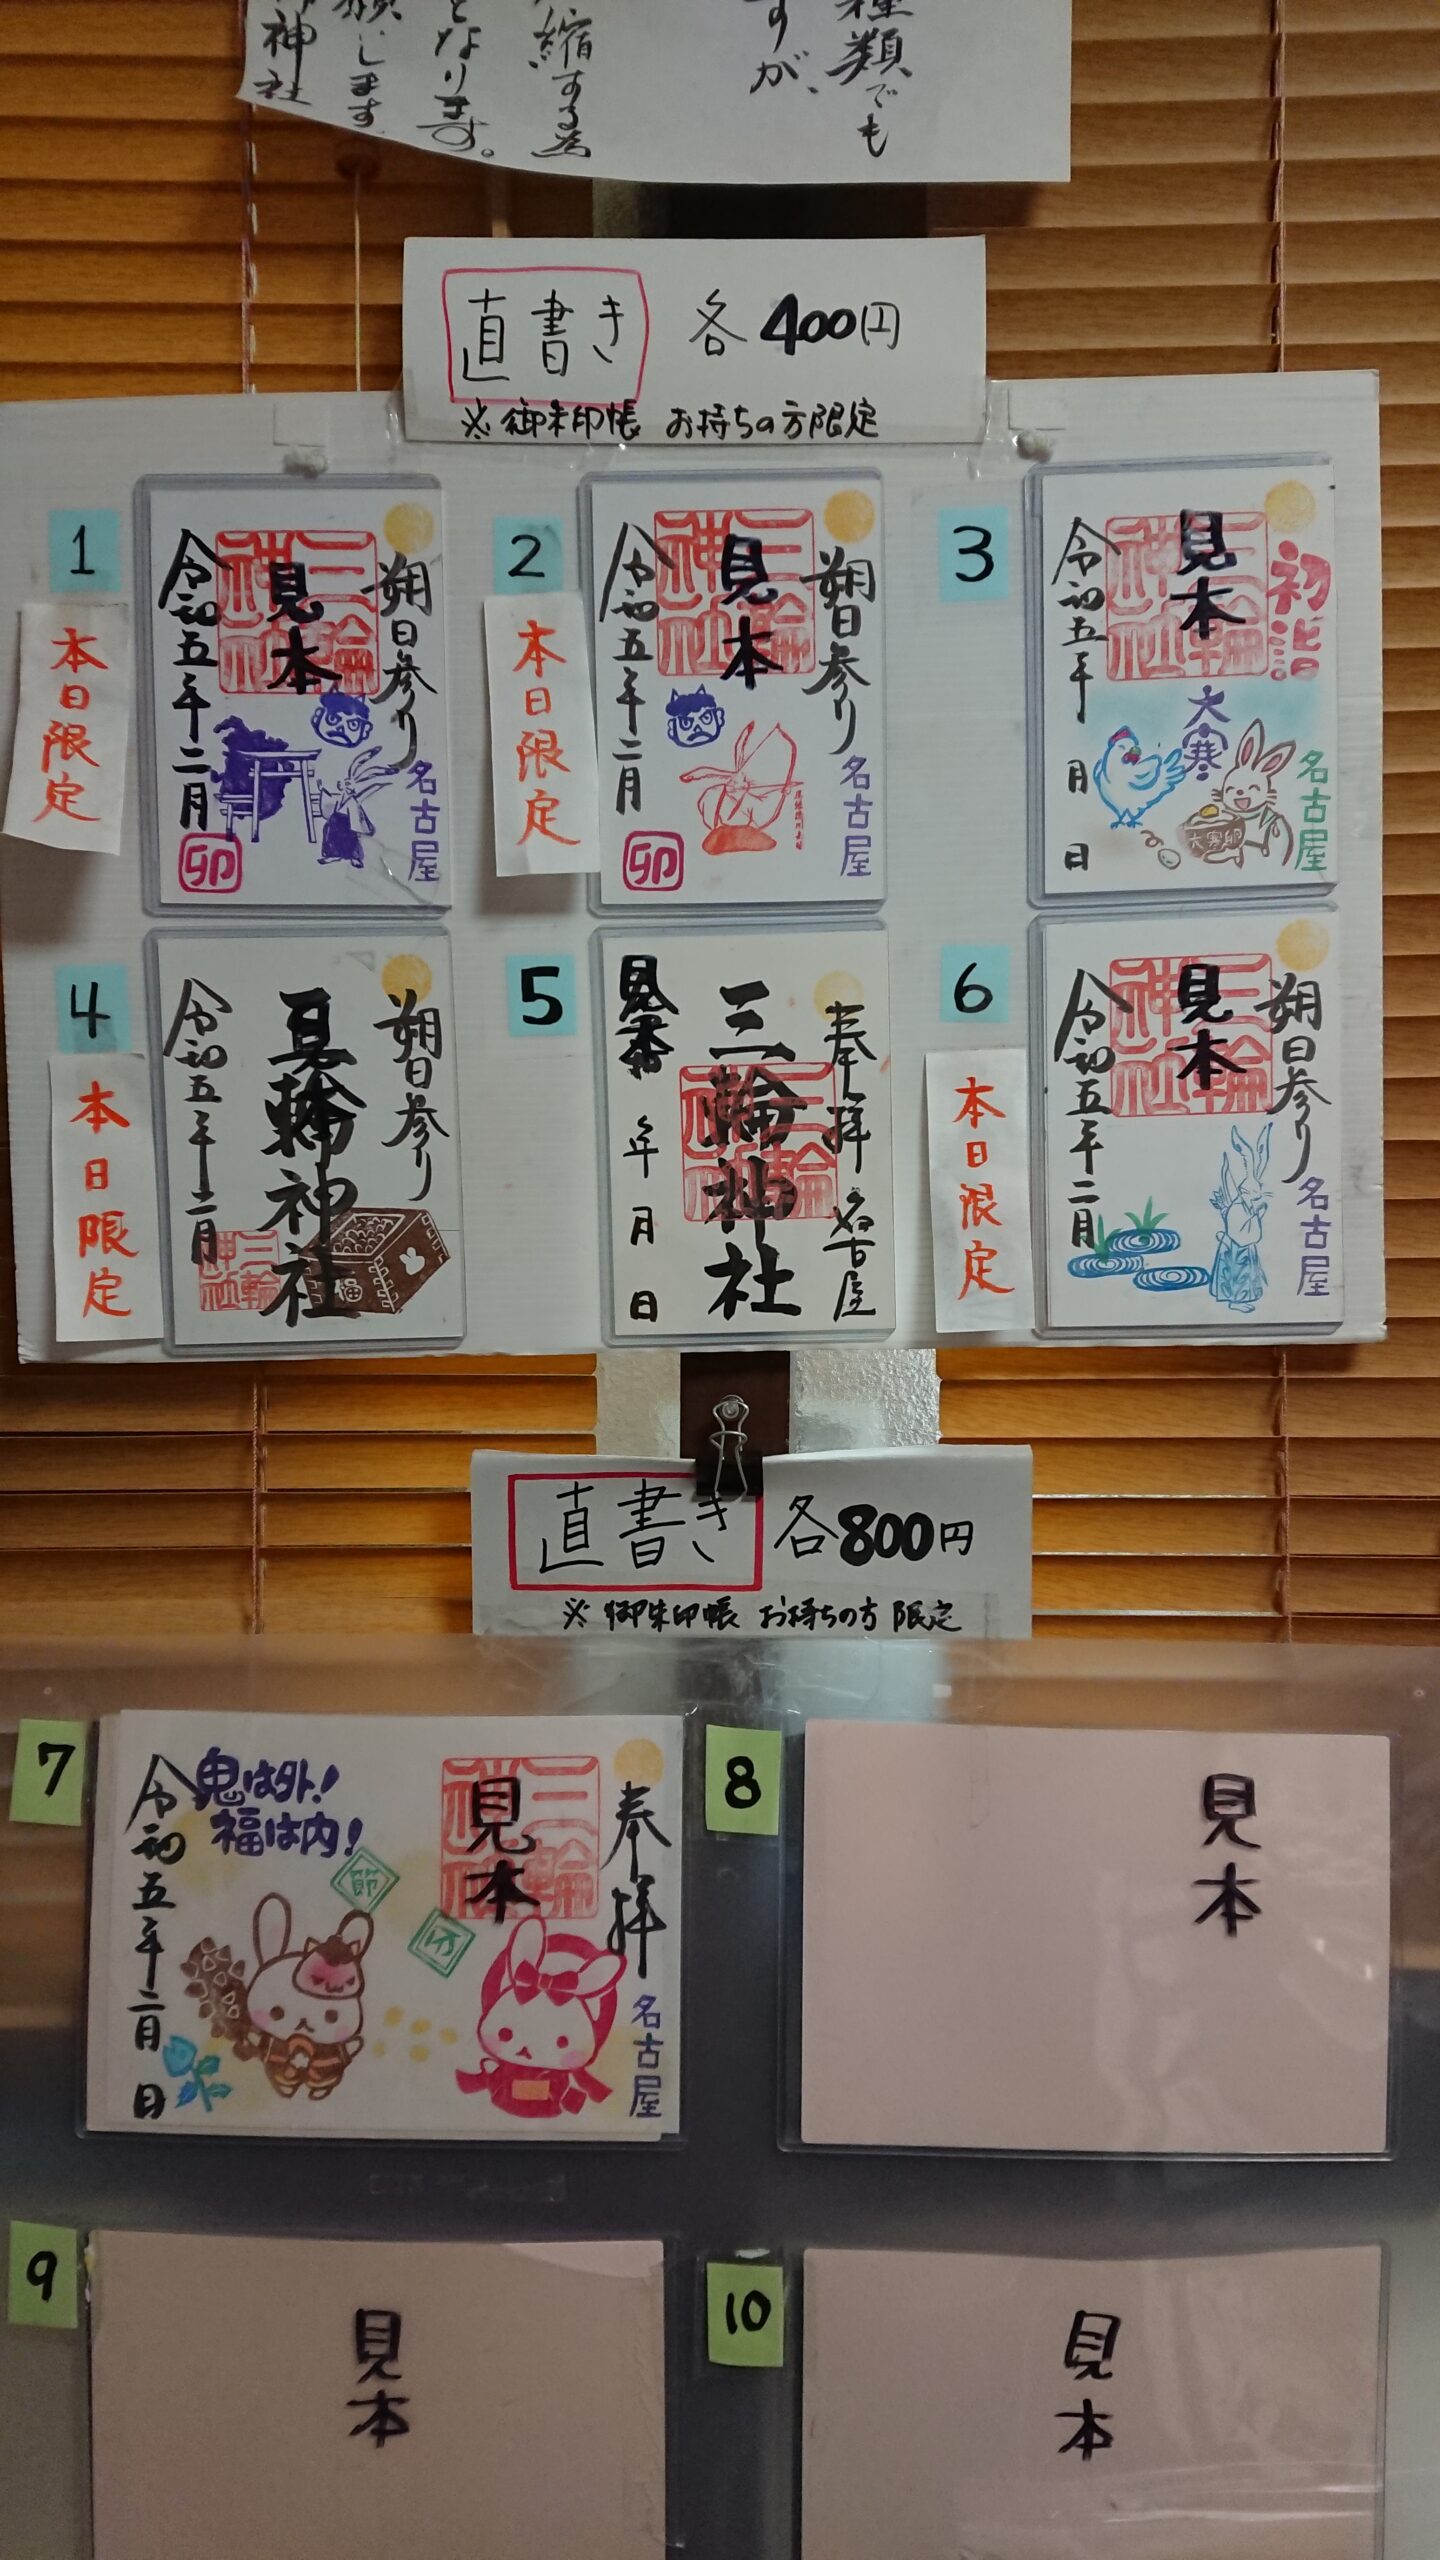 種類でも
すが、
縮する為
となります。
願いします
神社
直書き 各400円
※御朱印帳 お持ちの方限定
1
本日限定
朔日参り
名古屋
三輪神社
見本
令和五年二月
卯
2
本日限定
朔日参り
名古屋
三輪神社
見本
令和五年二月
卯
3
初詣
名古屋
三輪神社
見本
大寒
大寒卵
令和五年 月 日
4
本日限定
朔日参り
三輪神社
見本
福
三輪神社
令和五年二月
5
奉拝 名古屋
三輪神社
三輪神社
見本
年 月 日
6
本日限定
朔日参り
名古屋
三輪神社
見本
令和五年二月
直書き 各800円
※御朱印帳 お持ちの方限定
7
奉拝
名古屋
三輪神社
見本
節分
鬼は外!
福は内!
令和五年二月 日
8
見本
9
見本
10
見本